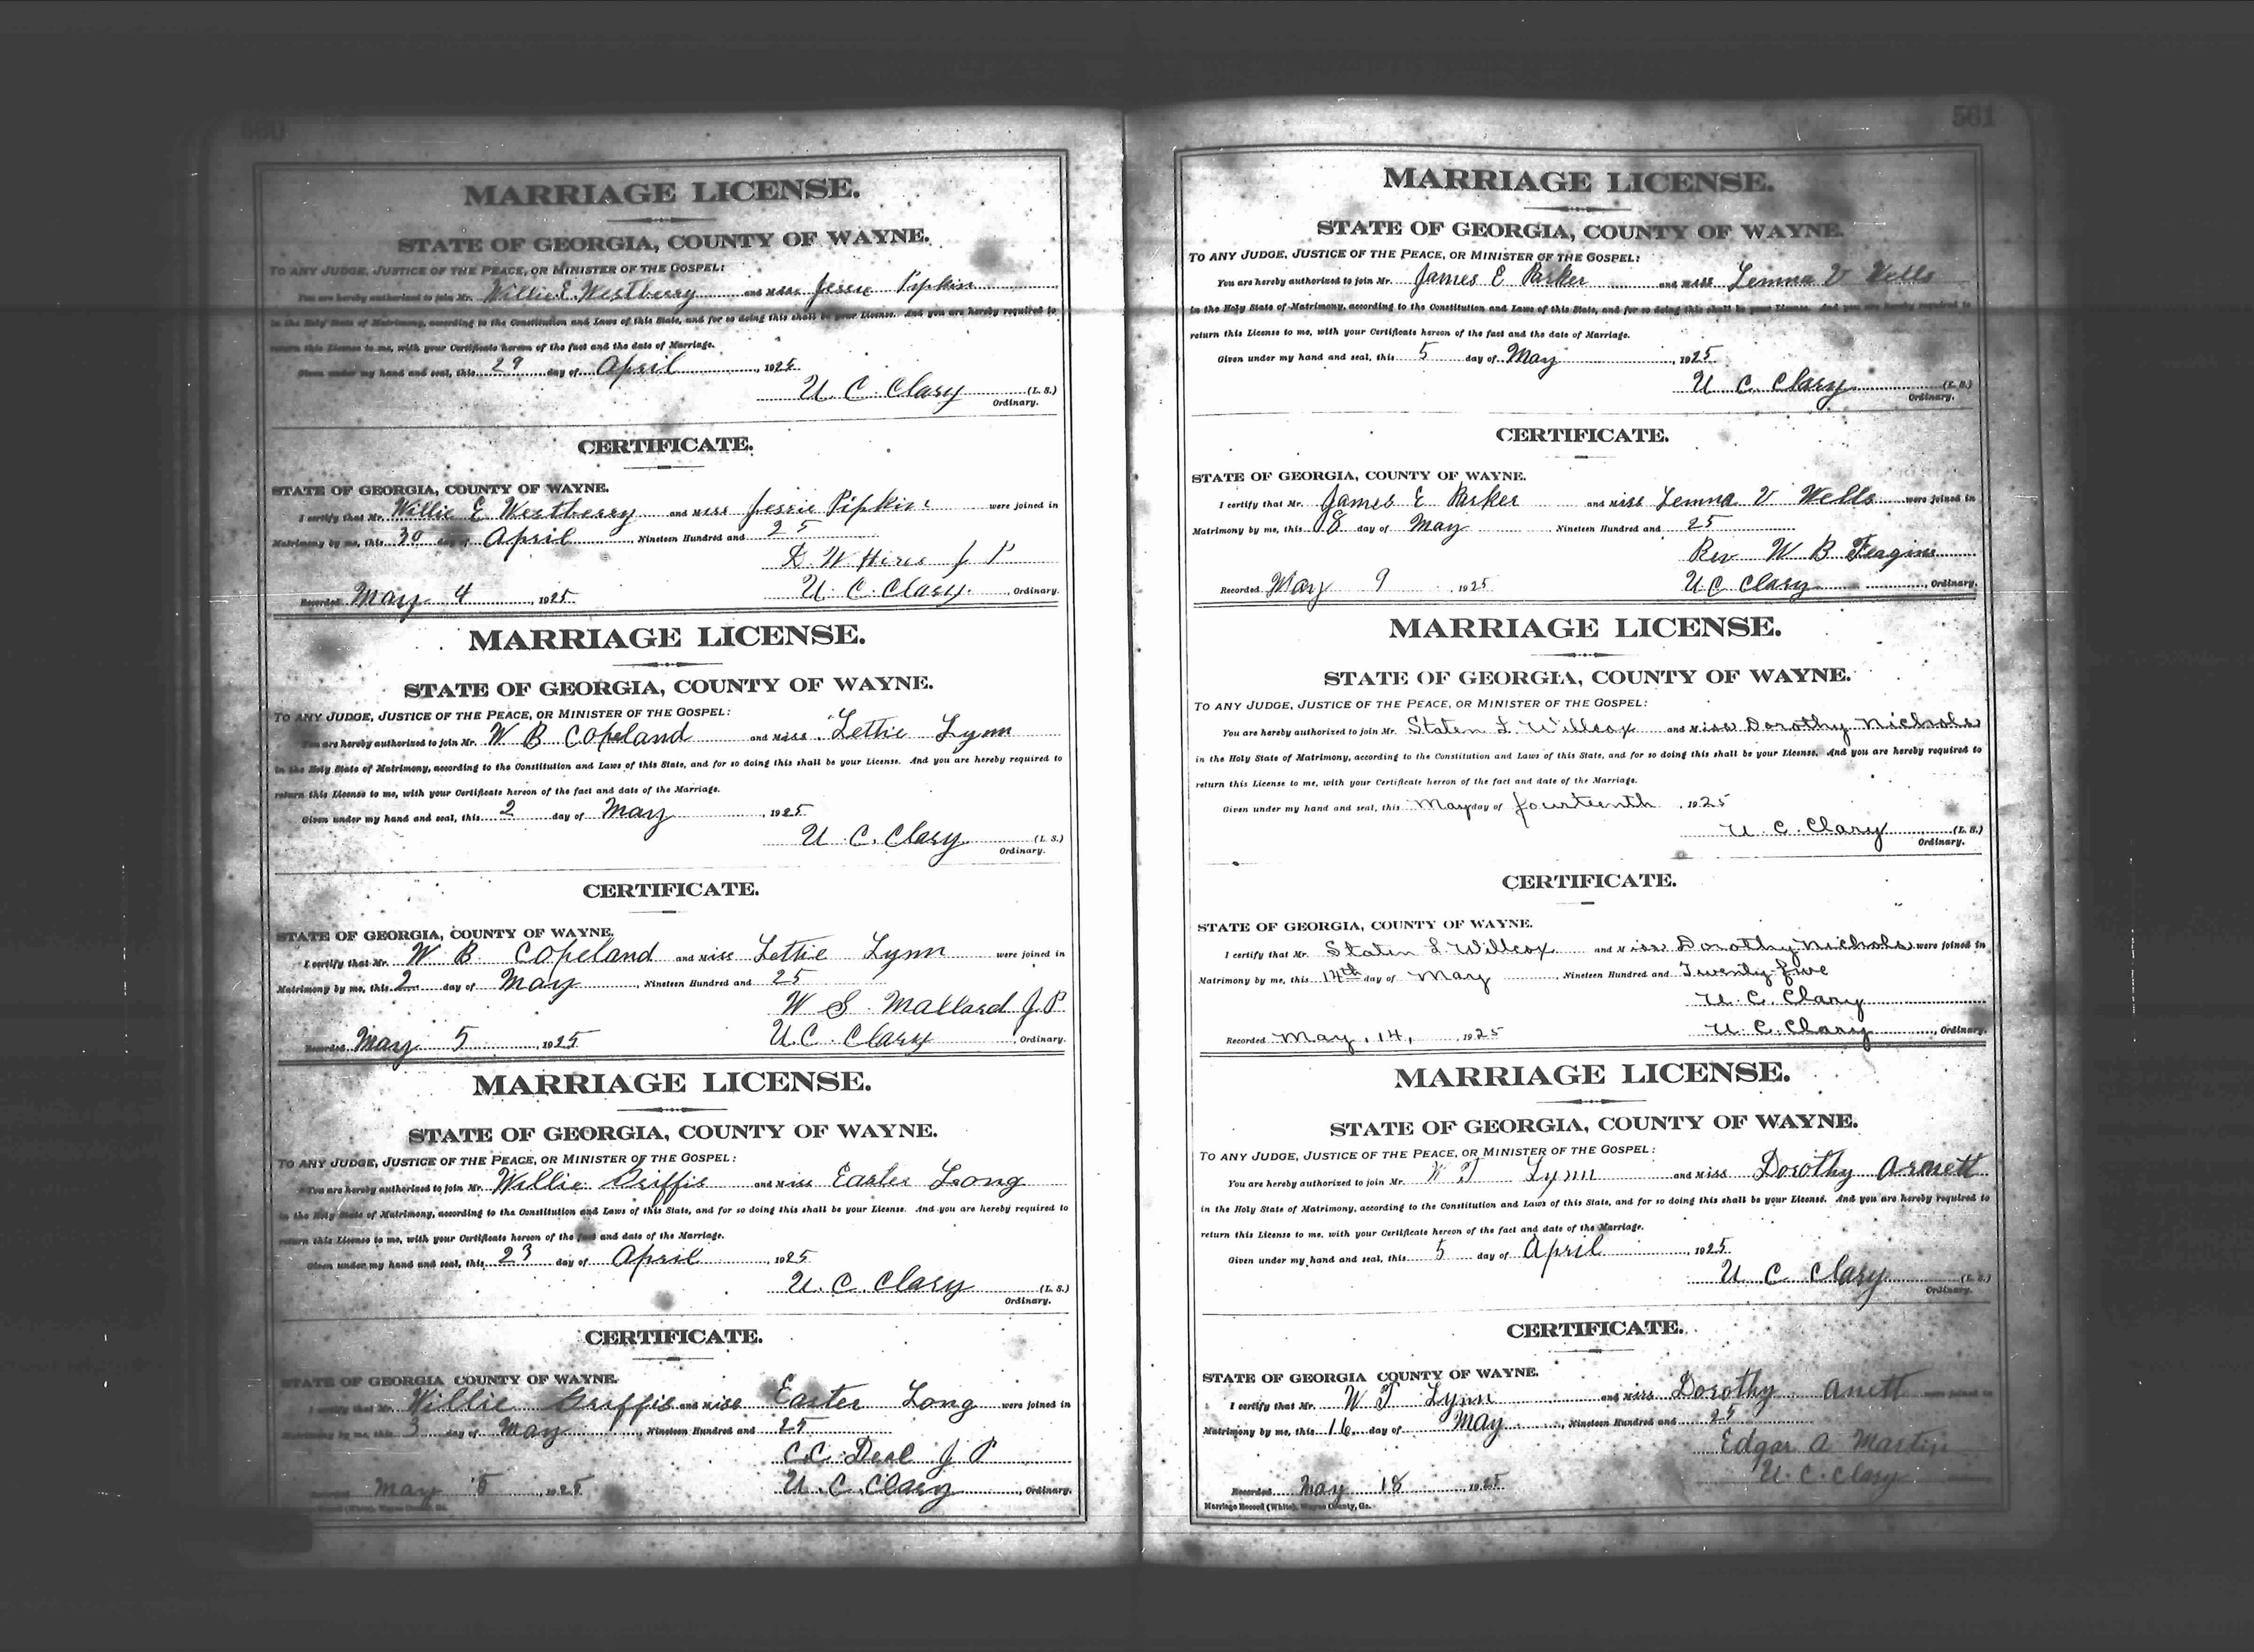 560
MARRIAGE LICENSE.
STATE OF GEORGIA, COUNTY OF WAYNE.
TO ANY JUDGE, JUSTICE OF THE PEACE, OR MINISTER OF THE GOSPEL:
You are hereby authorized to join Mr. Willie E. Westberry and Miss Jessie Pipkin
in the Holy State of Matrimony, according to the Constitution and Laws of this State, and for so doing this shall be your License. And you are hereby required to
return this License to me, with your Certificate hereon of the fact and the date of Marriage.
Given under my hand and seal, this 29 day of April, 1925.
U. C. Clary (L. S.)
Ordinary.
CERTIFICATE.
STATE OF GEORGIA, COUNTY OF WAYNE.
I certify that Mr. Willie E Westberry and Miss Jessie Pipkin were joined in
Matrimony by me, this 30 day of April, Nineteen Hundred and 25
D. W Hires J P
Recorded May 4, 1925. U. C. Clary, Ordinary.
MARRIAGE LICENSE.
STATE OF GEORGIA, COUNTY OF WAYNE.
TO ANY JUDGE, JUSTICE OF THE PEACE, OR MINISTER OF THE GOSPEL:
You are hereby authorized to join Mr. W B Copeland and Miss Lettie Lynn
in the Holy State of Matrimony, according to the Constitution and Laws of this State, and for so doing this shall be your License. And you are hereby required to
return this License to me, with your Certificate hereon of the fact and date of the Marriage.
Given under my hand and seal, this 2 day of May, 1925
U. C. Clary (L. S.)
Ordinary.
CERTIFICATE.
STATE OF GEORGIA, COUNTY OF WAYNE.
I certify that Mr. W B. Copeland and Miss Lettie Lynn were joined in
Matrimony by me, this 2 day of May, Nineteen Hundred and 25
W S. Mallard J. P.
Recorded May 5, 1925 U. C. Clary, Ordinary.
MARRIAGE LICENSE.
STATE OF GEORGIA, COUNTY OF WAYNE.
TO ANY JUDGE, JUSTICE OF THE PEACE, OR MINISTER OF THE GOSPEL:
You are hereby authorized to join Mr. Willie Griffis and Miss Easter Long
in the Holy State of Matrimony, according to the Constitution and Laws of this State, and for so doing this shall be your License. And you are hereby required to
return this License to me, with your Certificate hereon of the fact and date of the Marriage.
Given under my hand and seal, this 23 day of April, 1925
U. C. Clary (L. S.)
Ordinary.
CERTIFICATE.
STATE OF GEORGIA COUNTY OF WAYNE.
I certify that Mr. Willie Griffis and Miss Easter Long were joined in
Matrimony by me, this 3 day of May, Nineteen Hundred and 25
C.C. Deal J P
Recorded May 5, 1925 U. C. Clary, Ordinary.
Marriage Record (White), Wayne County, Ga.
561
MARRIAGE LICENSE.
STATE OF GEORGIA, COUNTY OF WAYNE.
TO ANY JUDGE, JUSTICE OF THE PEACE, OR MINISTER OF THE GOSPEL:
You are hereby authorized to join Mr. James E Parker and Miss Lemma V Wells
in the Holy State of Matrimony, according to the Constitution and Laws of this State, and for so doing this shall be your License. And you are hereby required to
return this License to me, with your Certificate hereon of the fact and the date of Marriage.
Given under my hand and seal, this 5 day of May, 1925
U C Clary (L. S.)
Ordinary.
CERTIFICATE.
STATE OF GEORGIA, COUNTY OF WAYNE.
I certify that Mr. James E Parker and Miss Lemma V Wells were joined in
Matrimony by me, this 8 day of May Nineteen Hundred and 25
Rev W B Feagin
Recorded May 9, 1925 U. C Clary, Ordinary.
MARRIAGE LICENSE.
STATE OF GEORGIA, COUNTY OF WAYNE.
TO ANY JUDGE, JUSTICE OF THE PEACE, OR MINISTER OF THE GOSPEL:
You are hereby authorized to join Mr. Staten L. Willcox and Miss Dorothy Nichols
in the Holy State of Matrimony, according to the Constitution and Laws of this State, and for so doing this shall be your License. And you are hereby required to
return this License to me, with your Certificate hereon of the fact and date of the Marriage.
Given under my hand and seal, this May day of fourteenth, 1925
U. C. Clary (L. S.)
Ordinary.
CERTIFICATE.
STATE OF GEORGIA, COUNTY OF WAYNE.
I certify that Mr. Staten L. Willcox and Miss Dorothy Nichols were joined in
Matrimony by me, this 14th day of May, Nineteen Hundred and Twenty-five
U. C. Clary
Recorded May, 14, 1925 U. C. Clary, Ordinary.
MARRIAGE LICENSE.
STATE OF GEORGIA, COUNTY OF WAYNE.
TO ANY JUDGE, JUSTICE OF THE PEACE, OR MINISTER OF THE GOSPEL:
You are hereby authorized to join Mr. W T Lynn and Miss Dorothy Arnett
in the Holy State of Matrimony, according to the Constitution and Laws of this State, and for so doing this shall be your License. And you are hereby required to
return this License to me, with your Certificate hereon of the fact and date of the Marriage.
Given under my hand and seal, this 5 day of April, 1925.
U. C Clary (L. S.)
Ordinary.
CERTIFICATE.
STATE OF GEORGIA COUNTY OF WAYNE.
I certify that Mr. W T Lynn and Miss Dorothy Anett were joined in
Matrimony by me, this 16 day of May, Nineteen Hundred and 25
Edgar A Martin
Recorded May 18, 1925 U. C. Clary Ordinary.
Marriage Record (White), Wayne County, Ga.